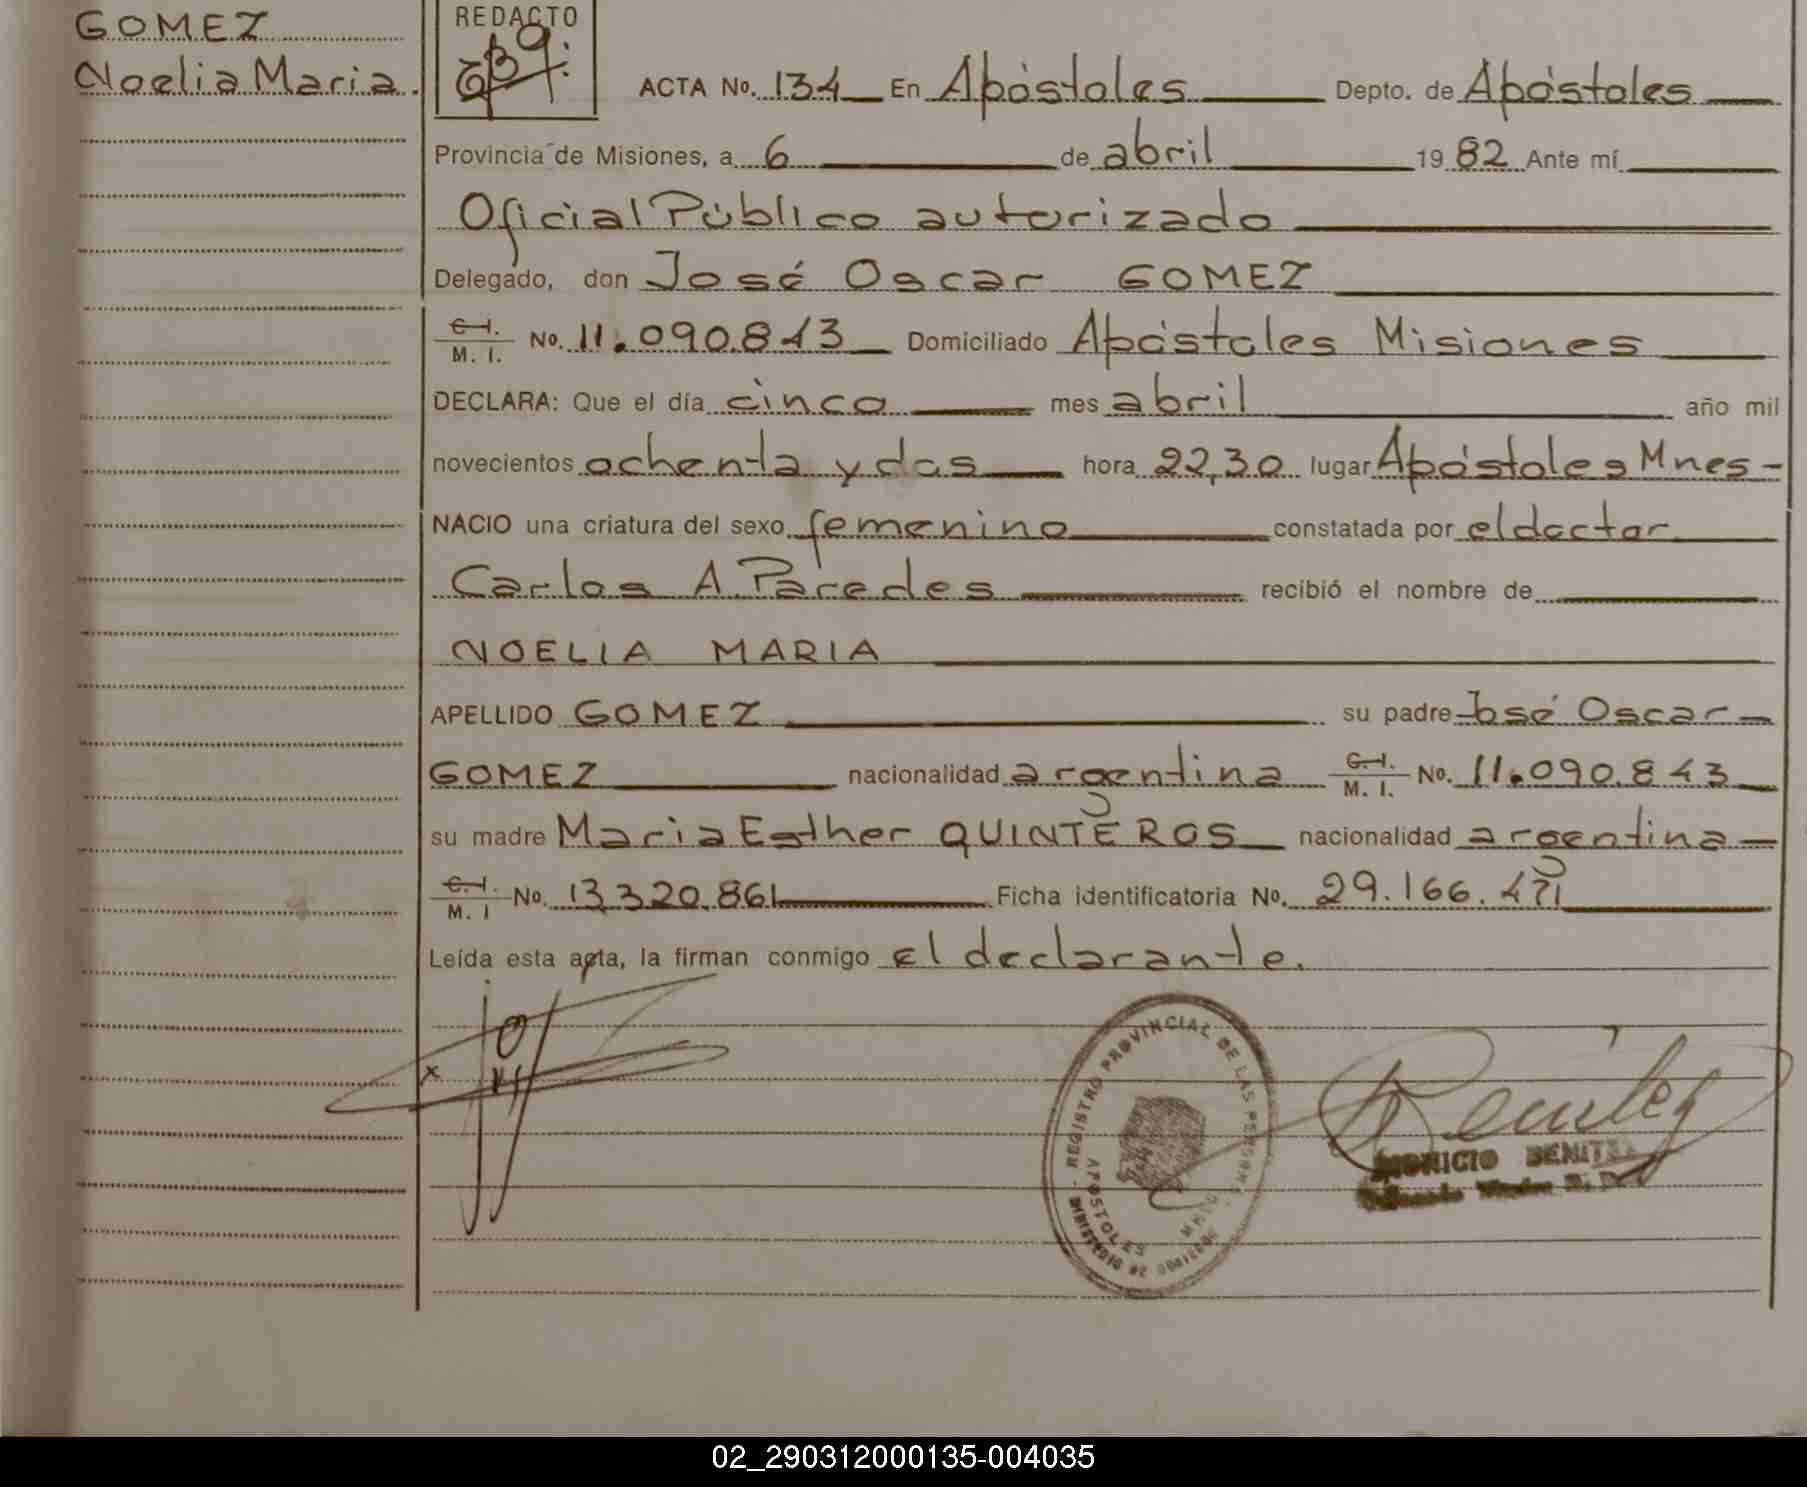 GOMEZ
Noelia Maria.
REDACTO
ACTA No. 134 En Apóstoles Depto. de Apóstoles
Provincia de Misiones, a 6 de abril 1982 Ante mí
Oficial Público autorizado
Delegado, don José Oscar GOMEZ
C.I. M. I. No. 11.090.843 Domiciliado Apóstoles Misiones
DECLARA: Que el día cinco mes abril año mil
novecientos ochenta y dos hora 22,30 lugar Apóstoles Mnes-
NACIO una criatura del sexo femenino constatada por el doctor
Carlos A. Paredes recibió el nombre de
NOELIA MARIA
APELLIDO GOMEZ su padre José Oscar
GOMEZ nacionalidad argentina C.I. M. I. No. 11.090.843
su madre Maria Esther QUINTEROS nacionalidad argentina
C.I. M. I No. 13.320.861 Ficha identificatoria No. 29.166.471
Leída esta acta, la firman conmigo el declarante.
REGISTRO PROVINCIAL DE LAS PERSONAS
APOSTOLES
MINISTERIO DE GOBIERNO
Benitez
DIONICIO BENITEZ
02_290312000135-004035